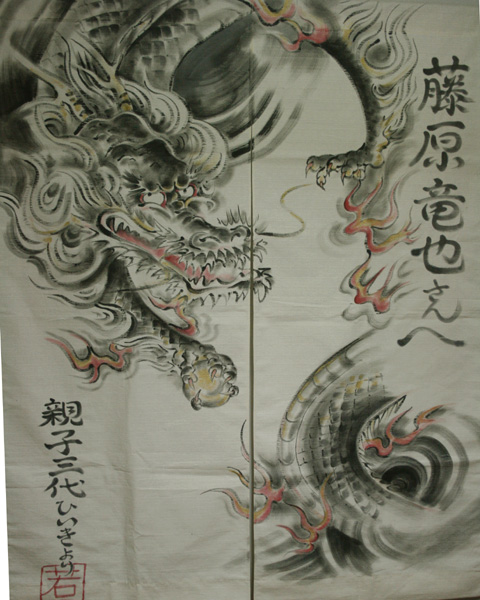 藤原竜也さんへ
親子三代ひいきより
若